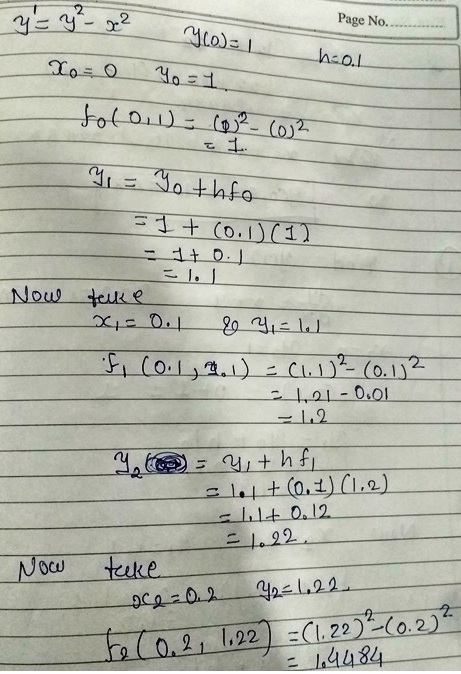 Page No.
y' = y² - x²
y(0) = 1
h = 0.1
x₀ = 0 y₀ = 1.
f₀(0,1) = (1)² - (0)²
= 1.
y₁ = y₀ + hf₀
= 1 + (0.1)(1)
= 1 + 0.1
= 1.1
Now take
x₁ = 0.1 & y₁ = 1.1
f₁ (0.1, 1.1) = (1.1)² - (0.1)²
= 1.21 - 0.01
= 1.2
y₂ = y₁ + hf₁
= 1.1 + (0.1)(1.2)
= 1.1 + 0.12
= 1.22.
Now take
x₂ = 0.2 y₂ = 1.22.
f₂(0.2, 1.22) = (1.22)² - (0.2)²
= 1.4484